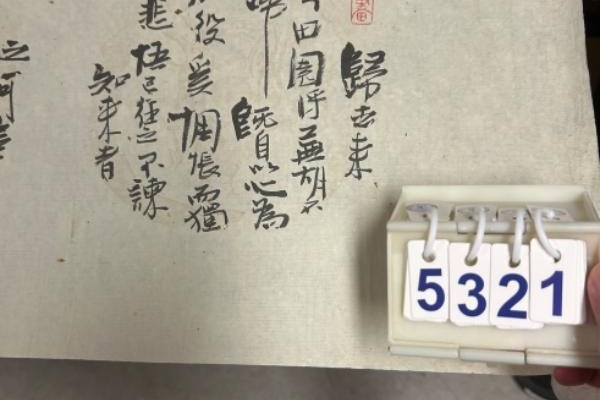 歸去来
田園将蕪胡不
既自以心為
役奚惆悵而獨
悲悟已往之不諫
知来者
之可
5321